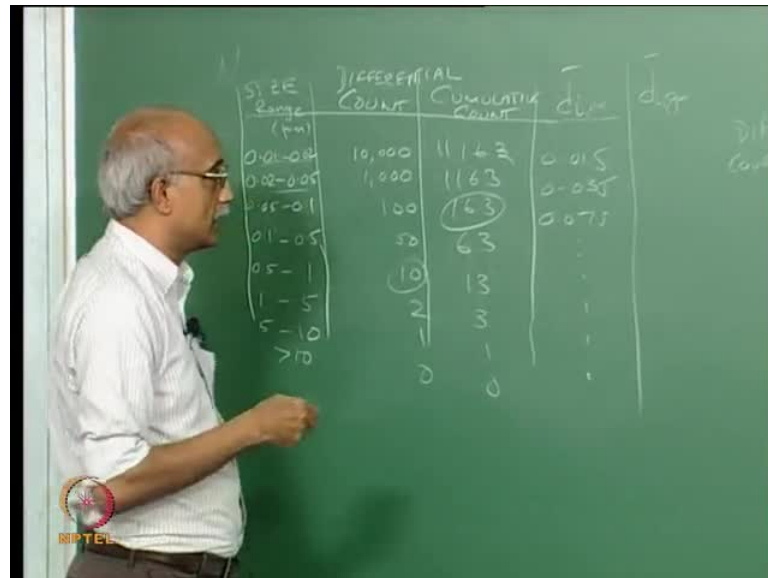 SIZE Range (μm) DIFFERENTIAL COUNT CUMULATIVE COUNT d̄im
0.01-0.02 10,000 11163 0.015
0.02-0.05 1,000 1163 0.035
0.05-0.1 100 163 0.075
0.1-0.5 50 63
0.5-1 10 13
1-5 2 3
5-10 1 1
>10 0 0
NPTEL